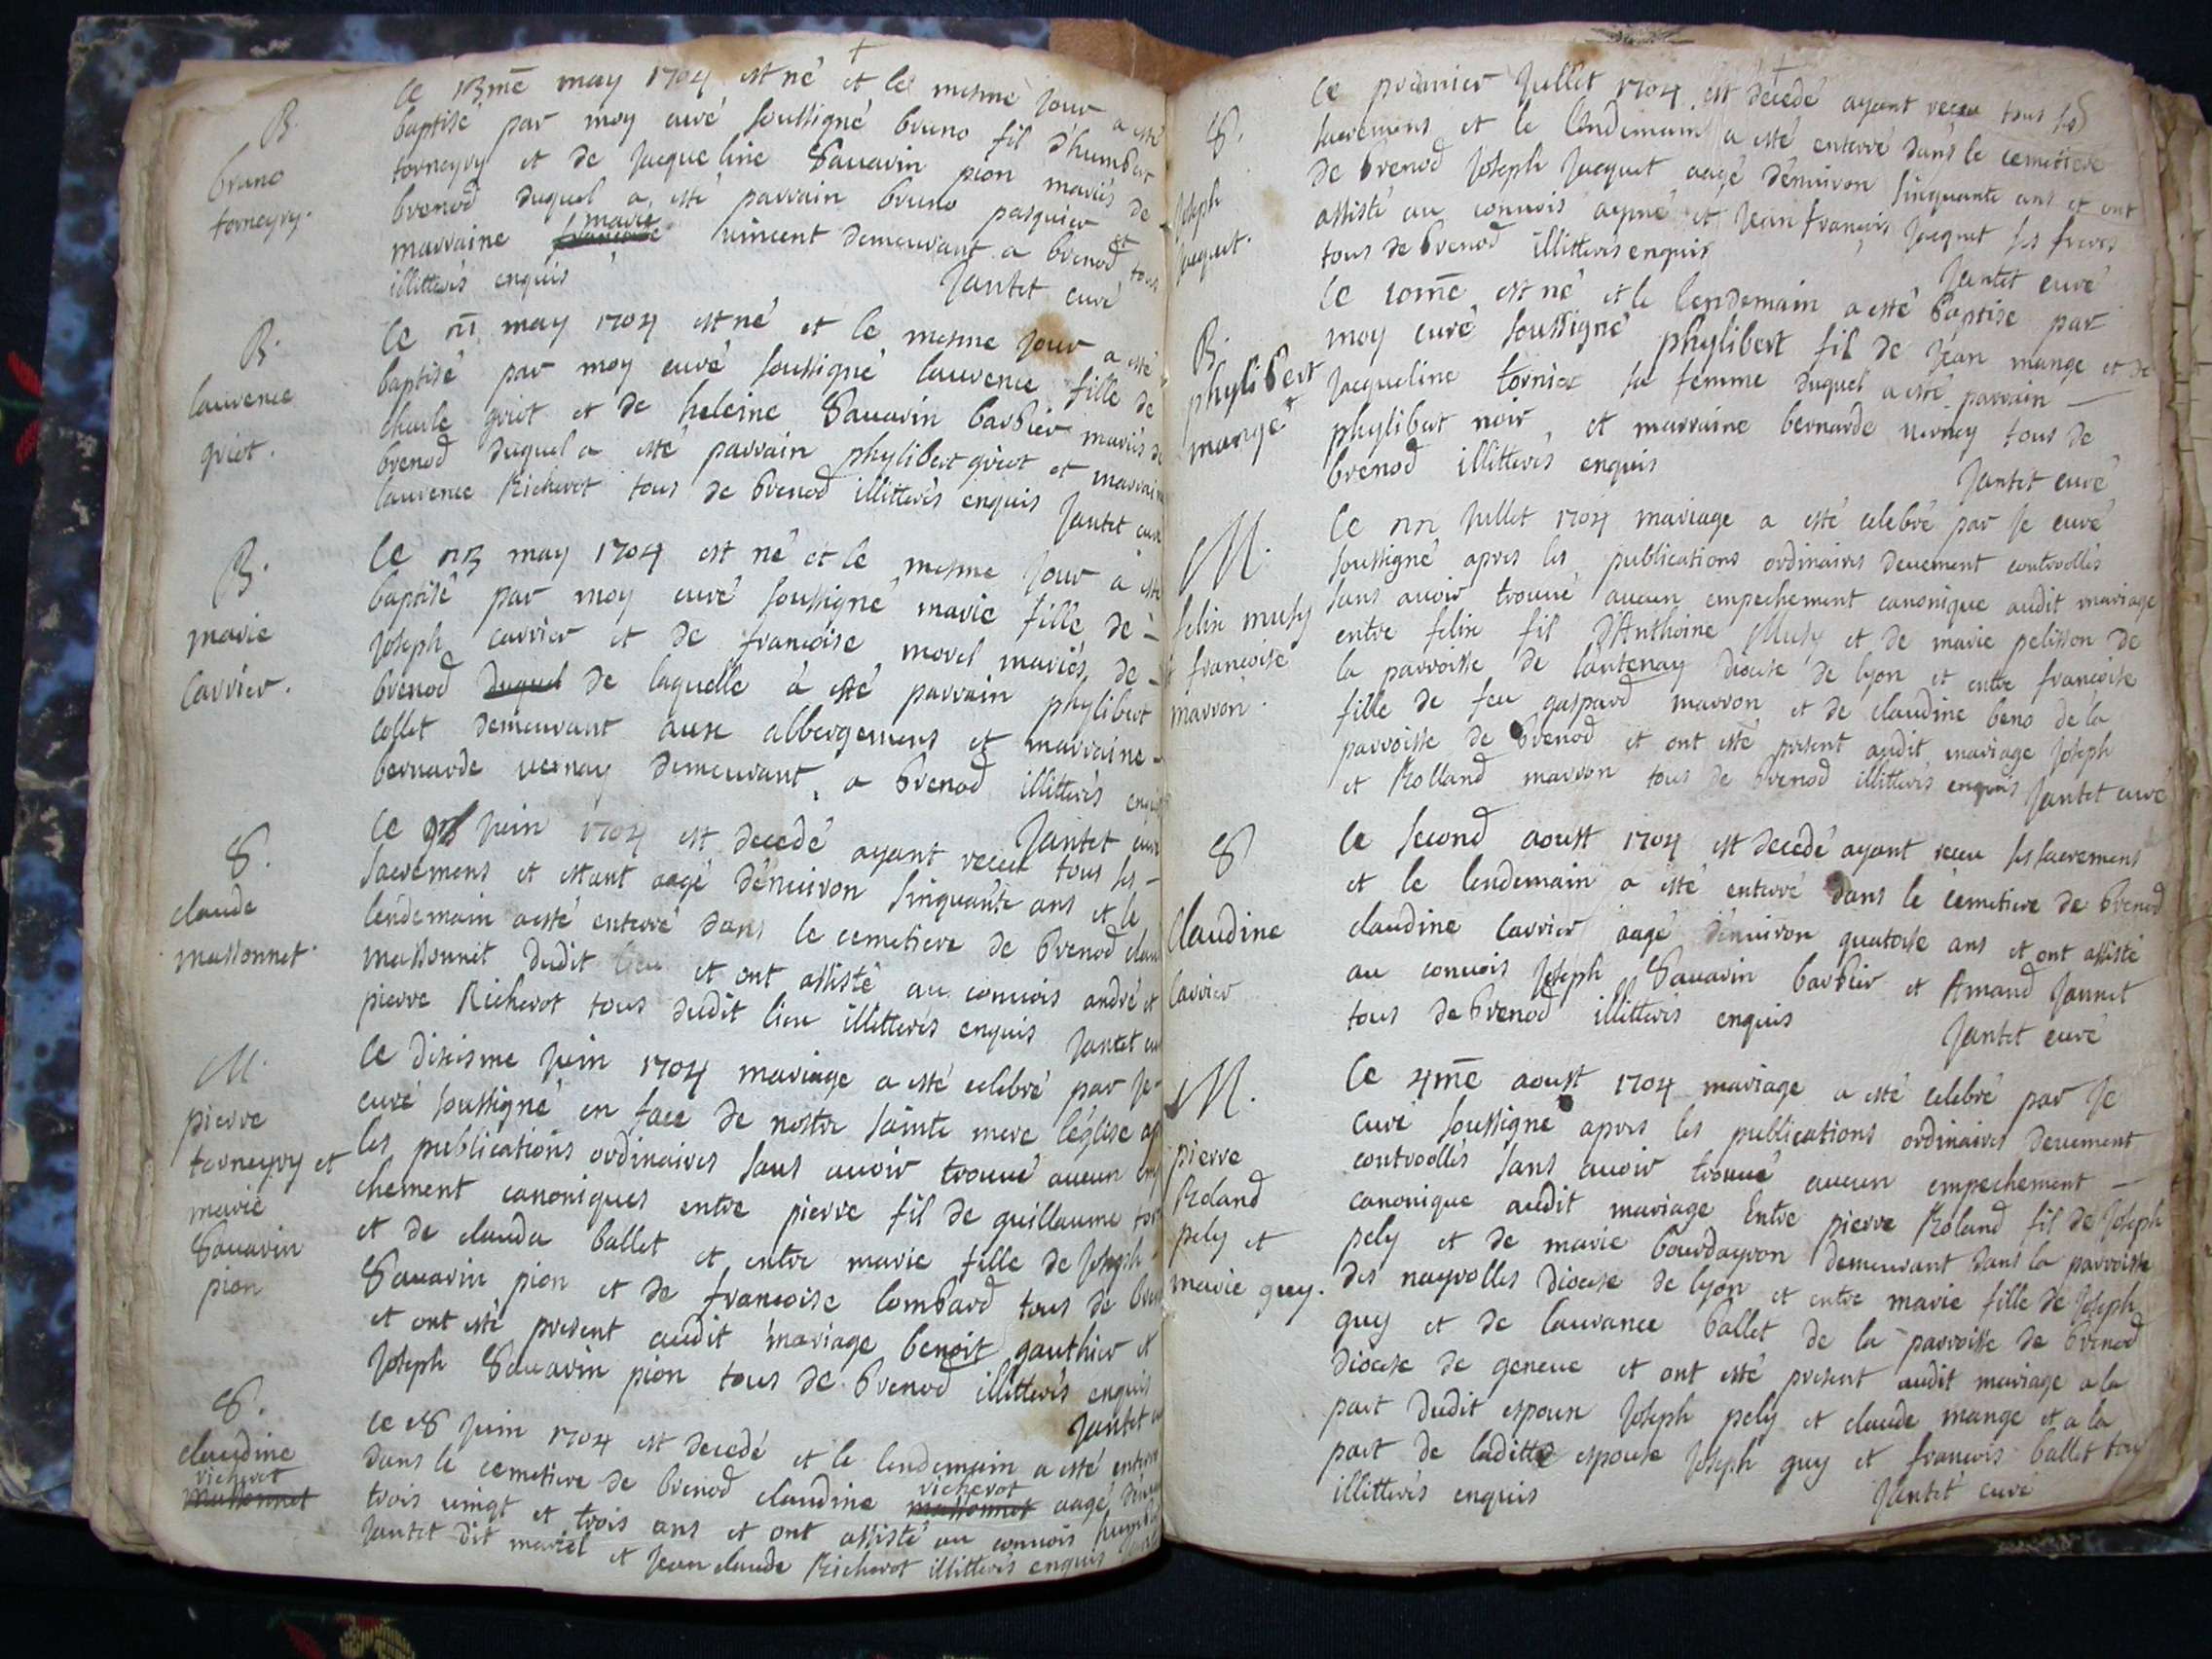 B.
bruno
torneyry.
Ce 13me may 1704 est né et le mesme jour a esté
baptisé par moy curé soussigné bruno fil d'humbert
torneyry et de jacqueline Sauarin pion mariés de
brenod duquel a esté parrain bruno pasquier et
marraine françoise marie uincent demeurant a brenod tous
illitterés enquis Jantet curé
B.
laurence
griot.
Ce may 1704 est né et le mesme jour a esté
baptisé par moy curé soussigné laurence fille de
charle griot et de heleine Sauarin barbier mariés de
brenod duquel a esté parrain phylibert griot et marraine
laurence Richerot tous de brenod illitterés enquis Jantet curé
B.
marie
Carrier.
Ce may 1704 est né et le mesme jour a esté
baptisé par moy curé soussigné marie fille de -
joseph carrier et de françoise morel mariés de -
brenod duquel de laquelle a esté parrain phylibert
collet demeurant aux abbergemens et marraine -
bernarde uernay demeurant a brenod illitterés enquis
Jantet curé
S.
claude
massonnet.
Ce juin 1704 est decedé ayant receu tous ses -
sacremens et estant aagé d'enuiron sinquante ans et le
lendemain a esté enterré dans le cemetiere de brenod
massonnet dudit lieu et ont assisté au conuois andré et
pierre Richerot tous dudit lieu illitterés enquis Jantet curé
M.
pierre
torneyry et
marie
Sauarin
pion
Ce dixisme juin 1704 mariage a esté celebré par je
curé soussigné en face de nostre sainte mere l'église
les publications ordinaires sans auoir trouué aucun
chement canoniques entre pierre fil de guillaume
et de clauda ballet et entre marie fille de joseph -
Sauarin pion et de françoise lombard tous de
et ont esté present audit mariage benoit gauthier et
joseph Sauarin pion tous de brenod illitterés enquis
Jantet
S.
claudine
richerot
massonnet
Ce 18 juin 1704 est decedé et le lendemain a esté
dans le cemetiere de brenod claudine massonnet richerot aagé
trois uingt et trois ans et ont assisté au conuois
jantet dit martel et jean claude Richerot illitterés enquis
S.
joseph
jacquet.
Ce premier jullet 1704 est decedé ayant receu tous ses
sacremens et le lendemain a esté enterré dans le cemetiere
de brenod joseph jacquet aagé d'enuiron sinquante ans et ont
assisté au conuois aymé et jean françois jacquet ses freres
tous de brenod illitteris enquis
Jantet curé
B.
phylibert
mange
Ce 10me est né et le lendemain a esté baptisé par
moy curé soussigné phylibert fil de jean mange et de
jacqueline tornier sa femme duquel a esté parrain -
phylibert noir et marraine bernarde uernay tous de
brenod illitterés enquis
Jantet curé
M.
felix musy
et françoise
marron.
Ce jullet 1704 mariage a esté celebré par je curé
soussigné apres les publications ordinaires deuement controollés
sans auoir trouué aucun empechement canonique audit mariage
entre felix fil d'Anthoine Musy et de marie pelisson de
la parroisse de lantenay diocese de lyon et entre françoise
fille de feu gaspard marron et de claudine beno de la
parroisse de brenod et ont esté present audit mariage joseph
et Rolland marron tous de brenod illitterés enquis Jantet curé
S
Claudine
Carrier
Ce second aoust 1704 est decedé ayant receu ses sacremens
et le lendemain a esté enterré dans le cemetiere de brenod
claudine Carrier aagé d'enuiron quatorse ans et ont assisté
au conuois joseph Sauarin barbier et Amand jannet
tous de brenod illitterés enquis
Jantet curé
M.
pierre
Roland
pely et
marie guy.
Ce 4me aoust 1704 mariage a esté celebré par je
curé soussigné apres les publications ordinaires deuement
controollés sans auoir trouué aucun empechement -
canonique audit mariage Entre pierre Roland fil de joseph
pely et de marie bourdayron demeurant dans la parroisse
des nayrolles diocese de lyon et entre marie fille de joseph
guy et de laurance ballet de la parroisse de brenod
diocese de geneue et ont esté present audit mariage a la
part dudit espoux joseph pely et claude mange et a la
part de laditte espouse joseph guy et françois ballet tous
illitterés enquis Jantet curé